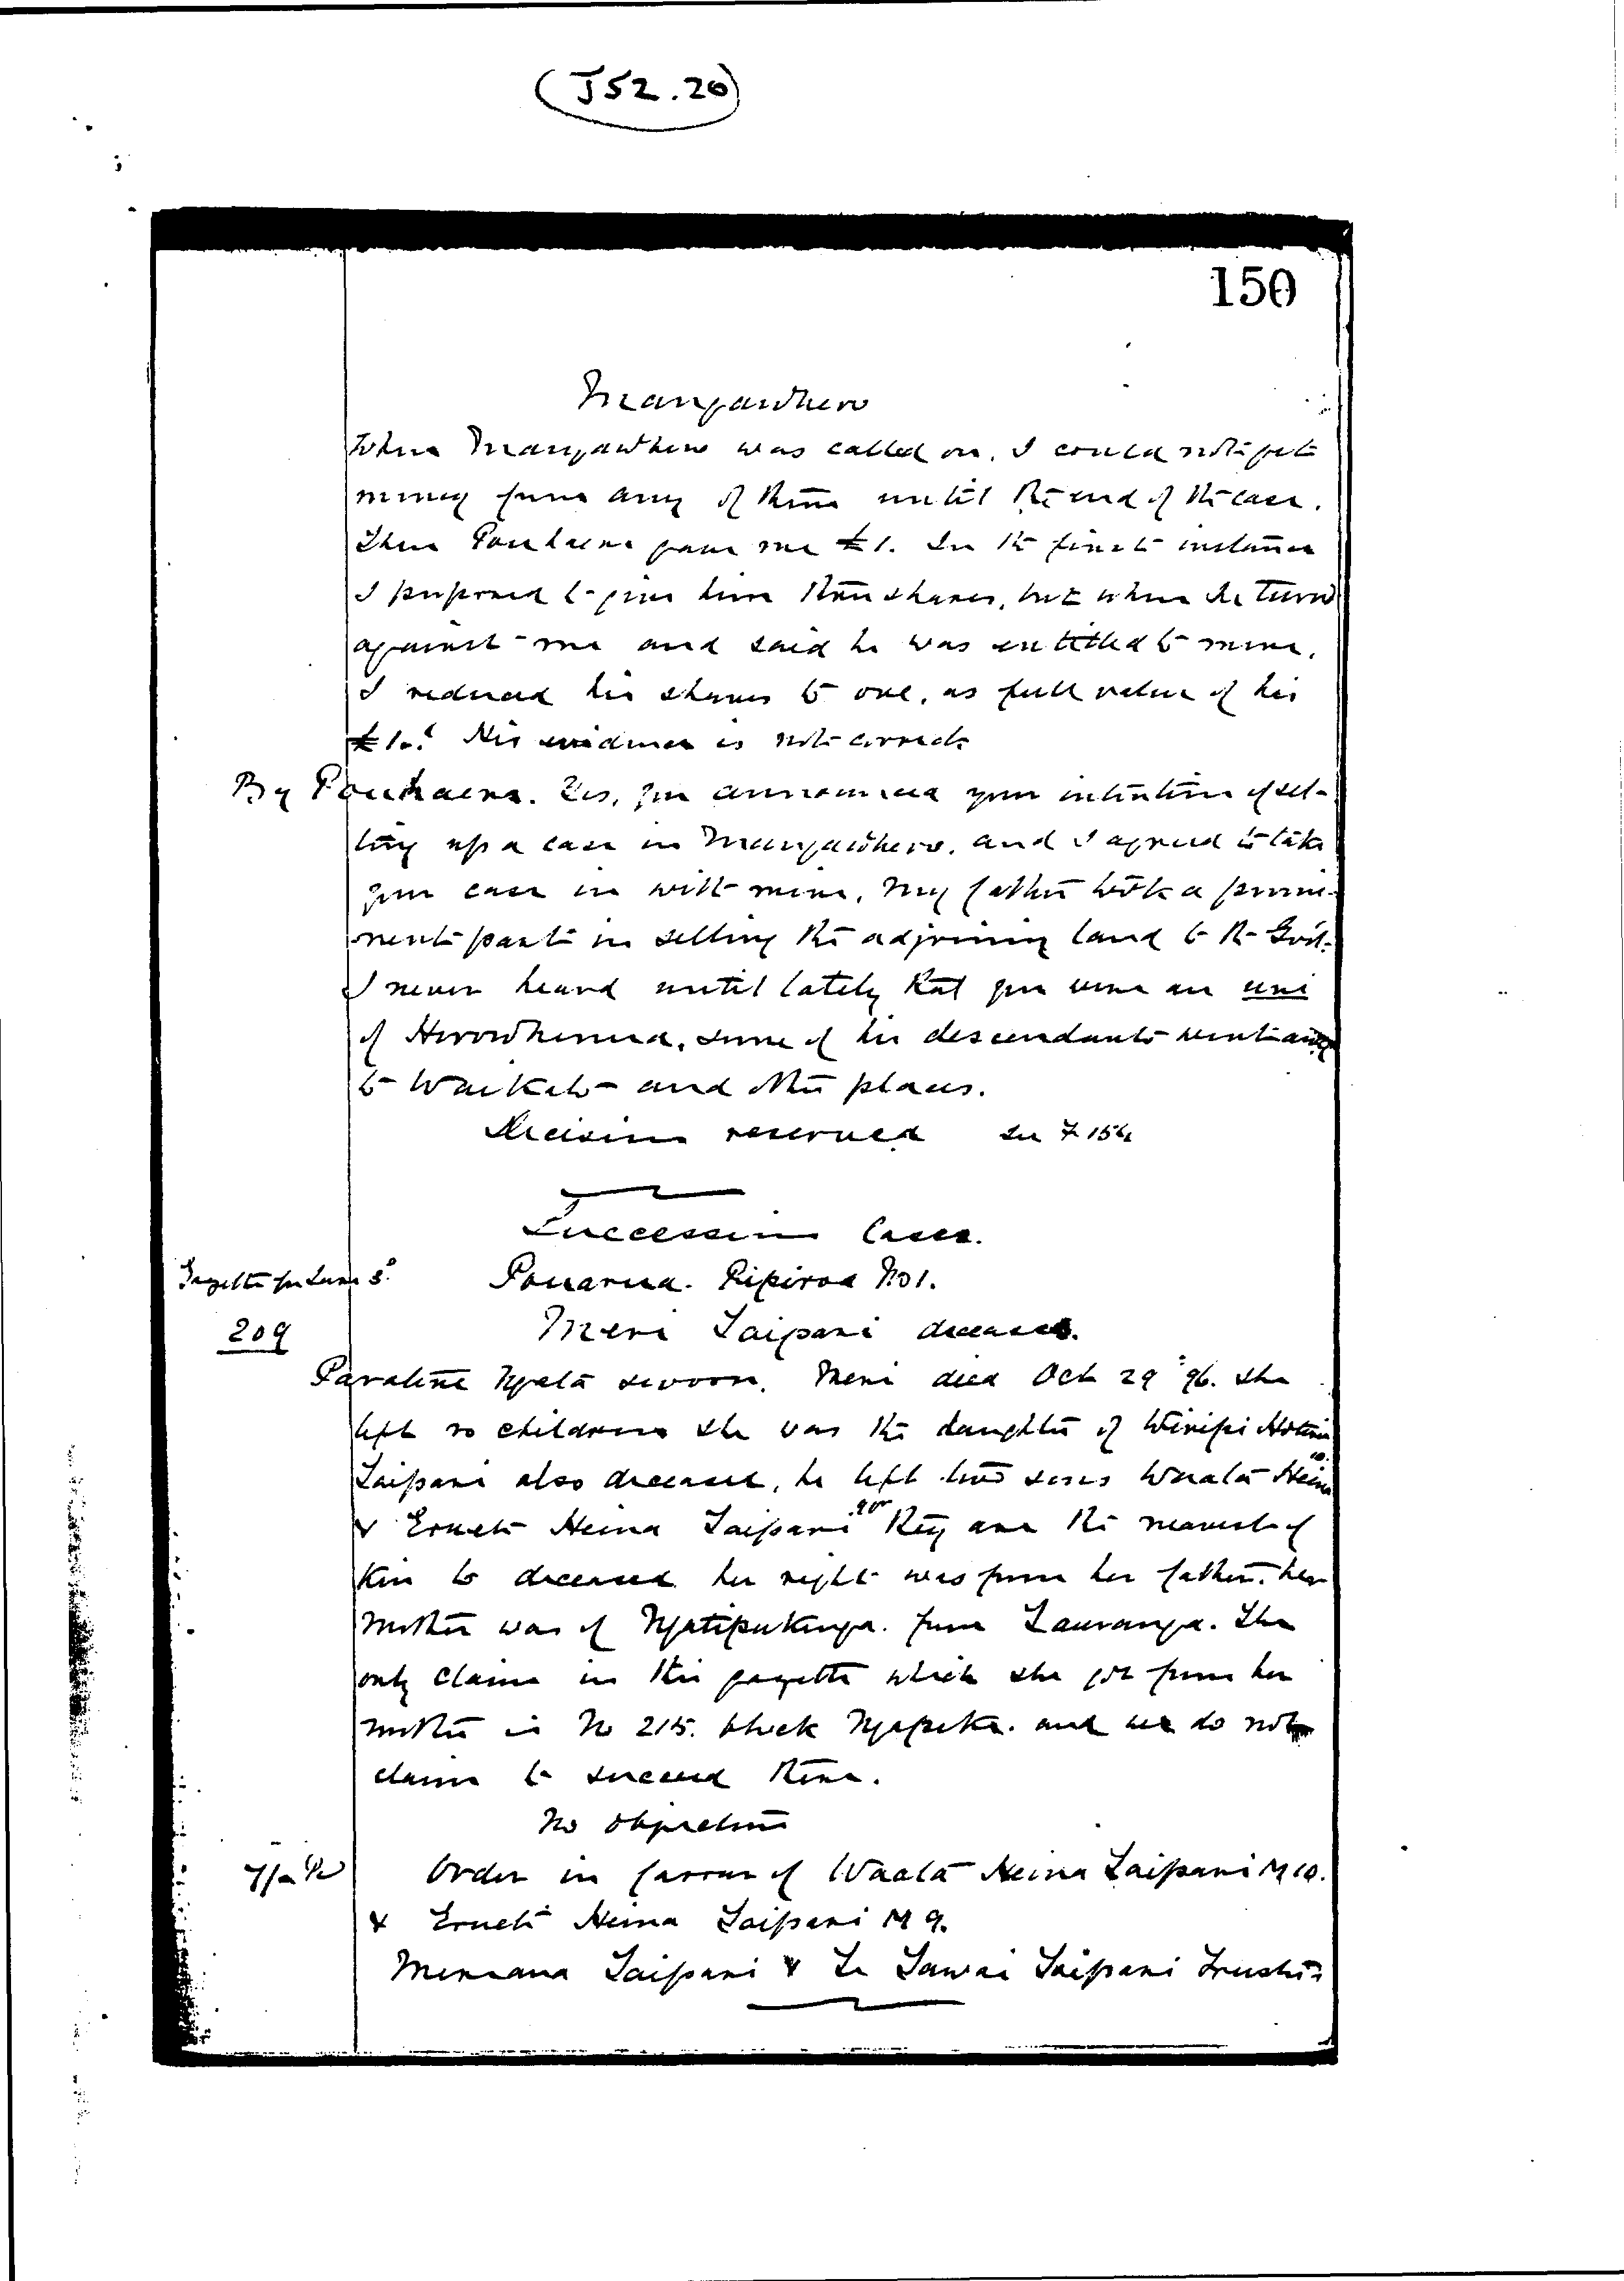 (J52.20)
150
Mangawhero
When Mangawhero was called on, I could not get
money from any of them until the end of the case.
Then Pouhaere gave me £1. In the first instance
I proposed to give him three shares, but when he turned
against me and said he was entitled to mine,
I reduced his shares to one, as full value of his
£1. His evidence is not correct
By Pouhaere. Yes, you announced your intention of set-
ting up a case in Mangawhero, and I agreed to take
your case in with mine. My father took a promi-
nent part in selling the adjoining land to the Govt.
I never heard until lately that you were an uri
of Hirowhenua, some of his descendants went away
to Waikato and other places.
Decision reserved See F 154
Succession Cases.
Gazette for June 3.
Pouarua. Pipiroa No 1.
209
Meri Taipari deceased.
Paratene Ngata sworn. Meri died Oct 29 96. She
left no children she was the daughter of Wiripi Hoterini
Taipari also deceased, he left two sons Waata Heina 10.
& Erueti Heina Taipari 9 yr They are the nearest of
kin to deceased her right was from her father. her
mother was of Ngatipukenga. from Tauranga. The
only claim in this gazette which she got from her
mother is No 215. block Ngapeke. and we do not
claim to succeed there.
No objection
Order in favour of Waata Heina Taipari M 10.
& Erueti Heina Taipari M 9.
Mereana Taipari & Te Tawai Taipari Trustees